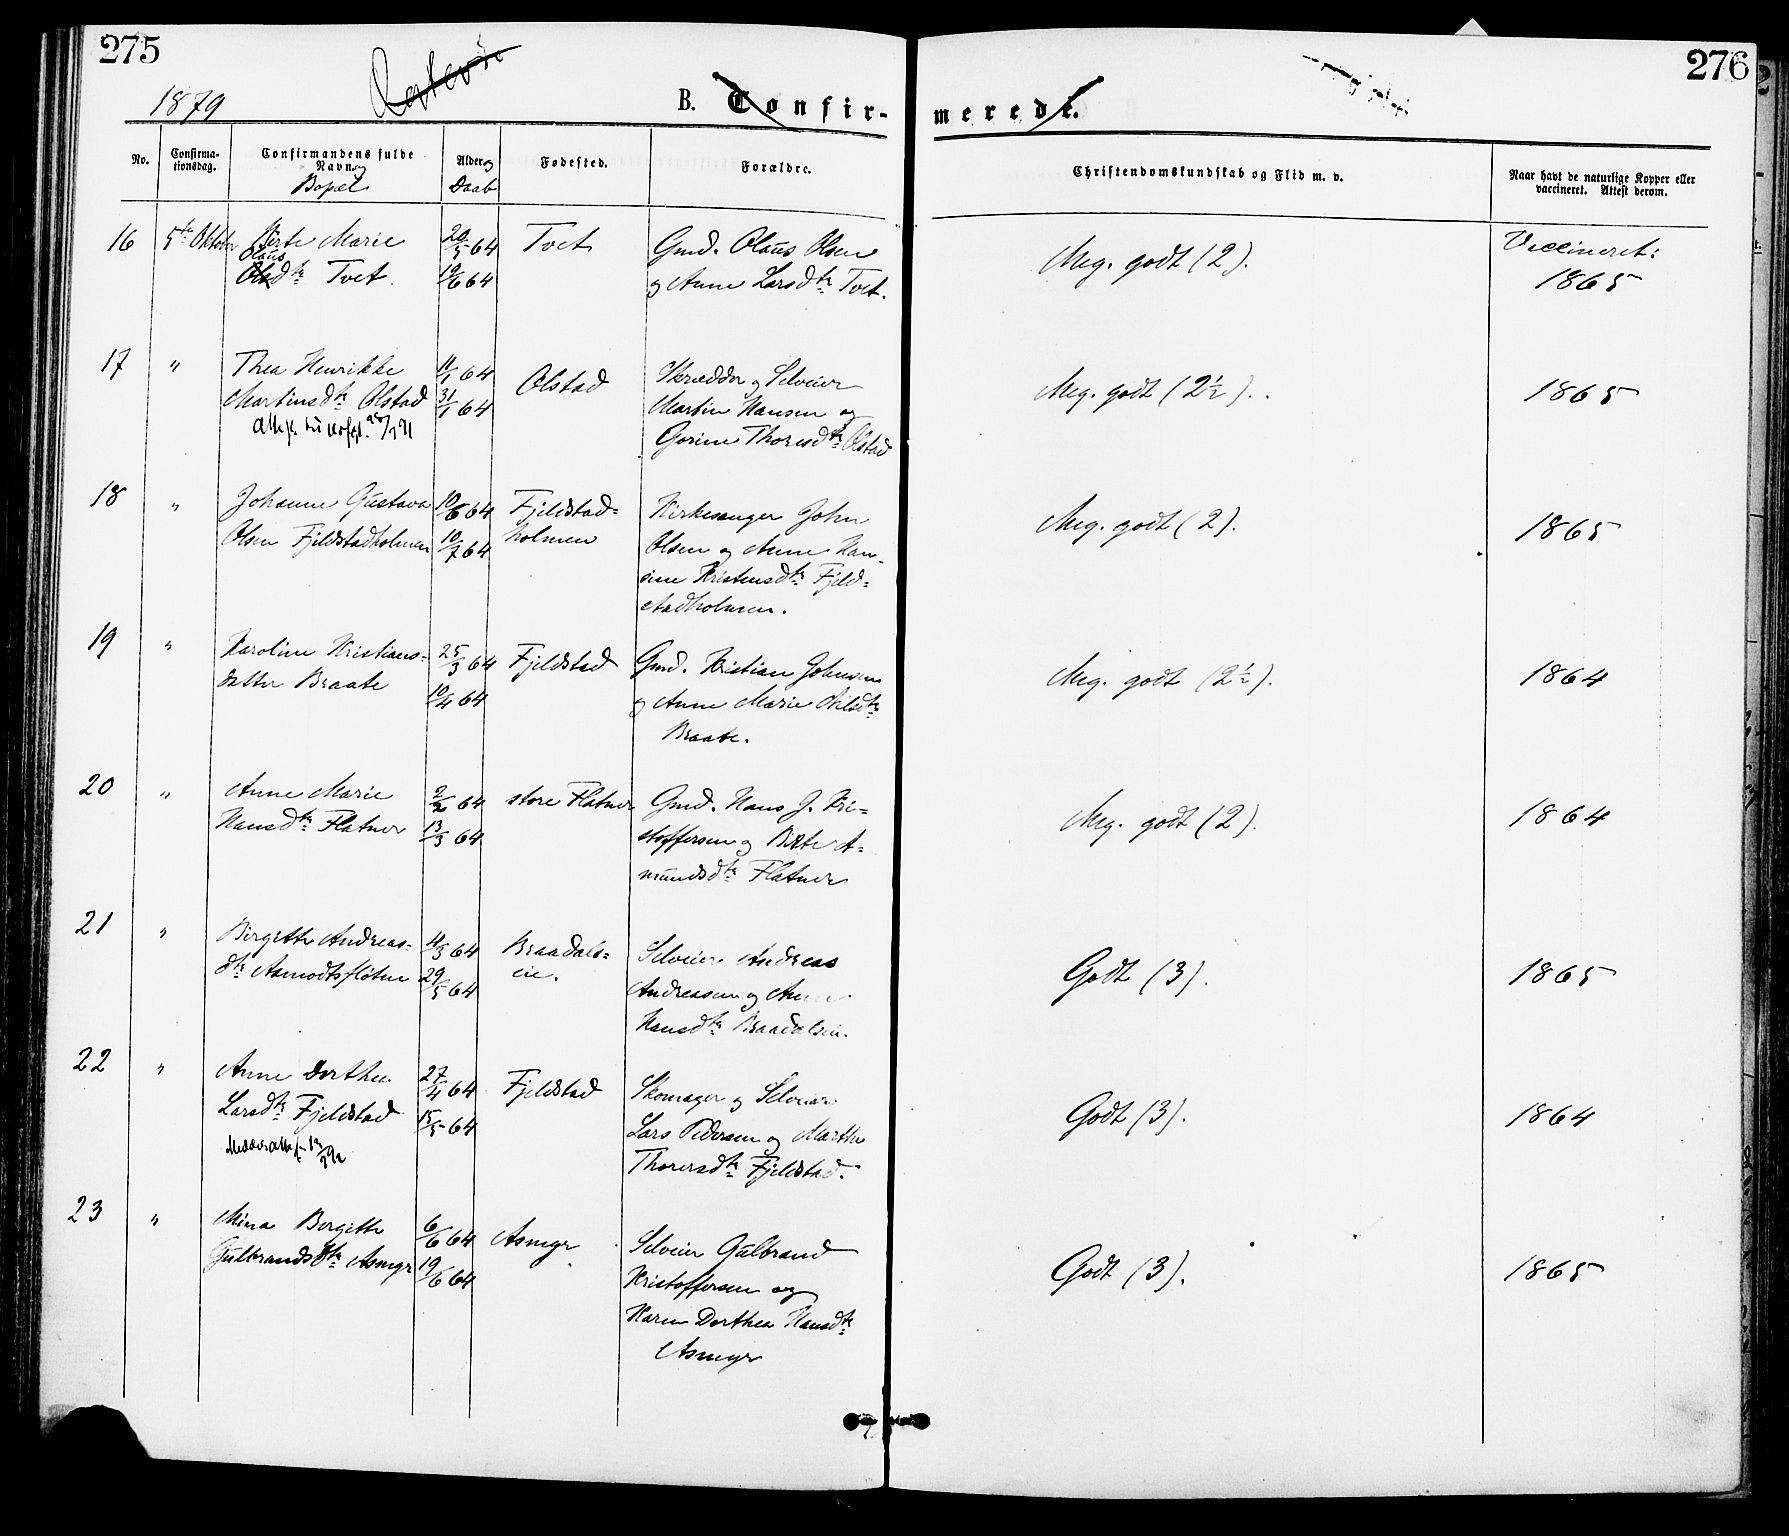 275
276
1879
B. Confir-
merede.
No.
Confirma-
tionsdag.
Confirmandens fulde
Navn og
Bopæl
Alder og
Daab
Fødested.
Forældre.
Christendomskundskab og Flid m. v.
Naar havt de naturlige Kopper eller
vaccineret. Attest derom.
16 5te Oktober Birte Marie 20/5 64 Tvet Gmd. Olaus Olsen Meg. godt (2). Vaccineret:
Olaus
Olsdtr Tvet. 19/6 64 og Anne Larsdtr Tvet. 1865
17 " Thea Henrikke 11/1 64 Olstad Skrædder og Selveier Meg. godt (2½). 1865
Martinsdtr Olstad 31/1 64 Martin Hansen og
Gorine Thoresdtr Olstad
18 " Johanne Gustava 10/6 64 Fjeldstad= Kirkesanger John Meg. godt (2). 1865
Olsen Fjeldstadholmen 10/7 64 holmen Olsen og Anne Han-
sine Kristensdtr Fjeld=
stadholmen.
19 " Karoline Kristians= 25/3 64 Fjeldstad Gmd. Kristian Johnsen Meg. godt (2½). 1864
datter Braate 10/4 64 og Anne Marie Nilsdtr
Braate.
20 " Anne Marie 2/2 64 store Flatner Gmd. Hans J. Kri= Meg. godt (2). 1864
Hansdtr Flatner 13/3 64 stoffersen og Birte A=
mundsdtr Flatner
21 " Birgitte Andreas= 4/3 64 Braadals= Selveier Andreas Godt (3). 1865
dtr Aamodtsfløtne 29/5 64 eie. Andreasen og Anne
Hansdtr Braadalseie.
22 " Anne Dorthea 27/4 64 Fjeldstad Skomager og Selveier Godt (3). 1864
Larsdtr Fjeldstad 15/5 64 Lars Pedersen og Marthe
Thoresdtr Fjeldstad.
23 " Mina Bergitte 6/6 64 Asmyr Selveier Gulbrand Godt (3). 1865
Gulbrandsdtr Asmyr 19/6 64 Kristoffersen og
Karen Dorthea Hansdtr
Asmyr